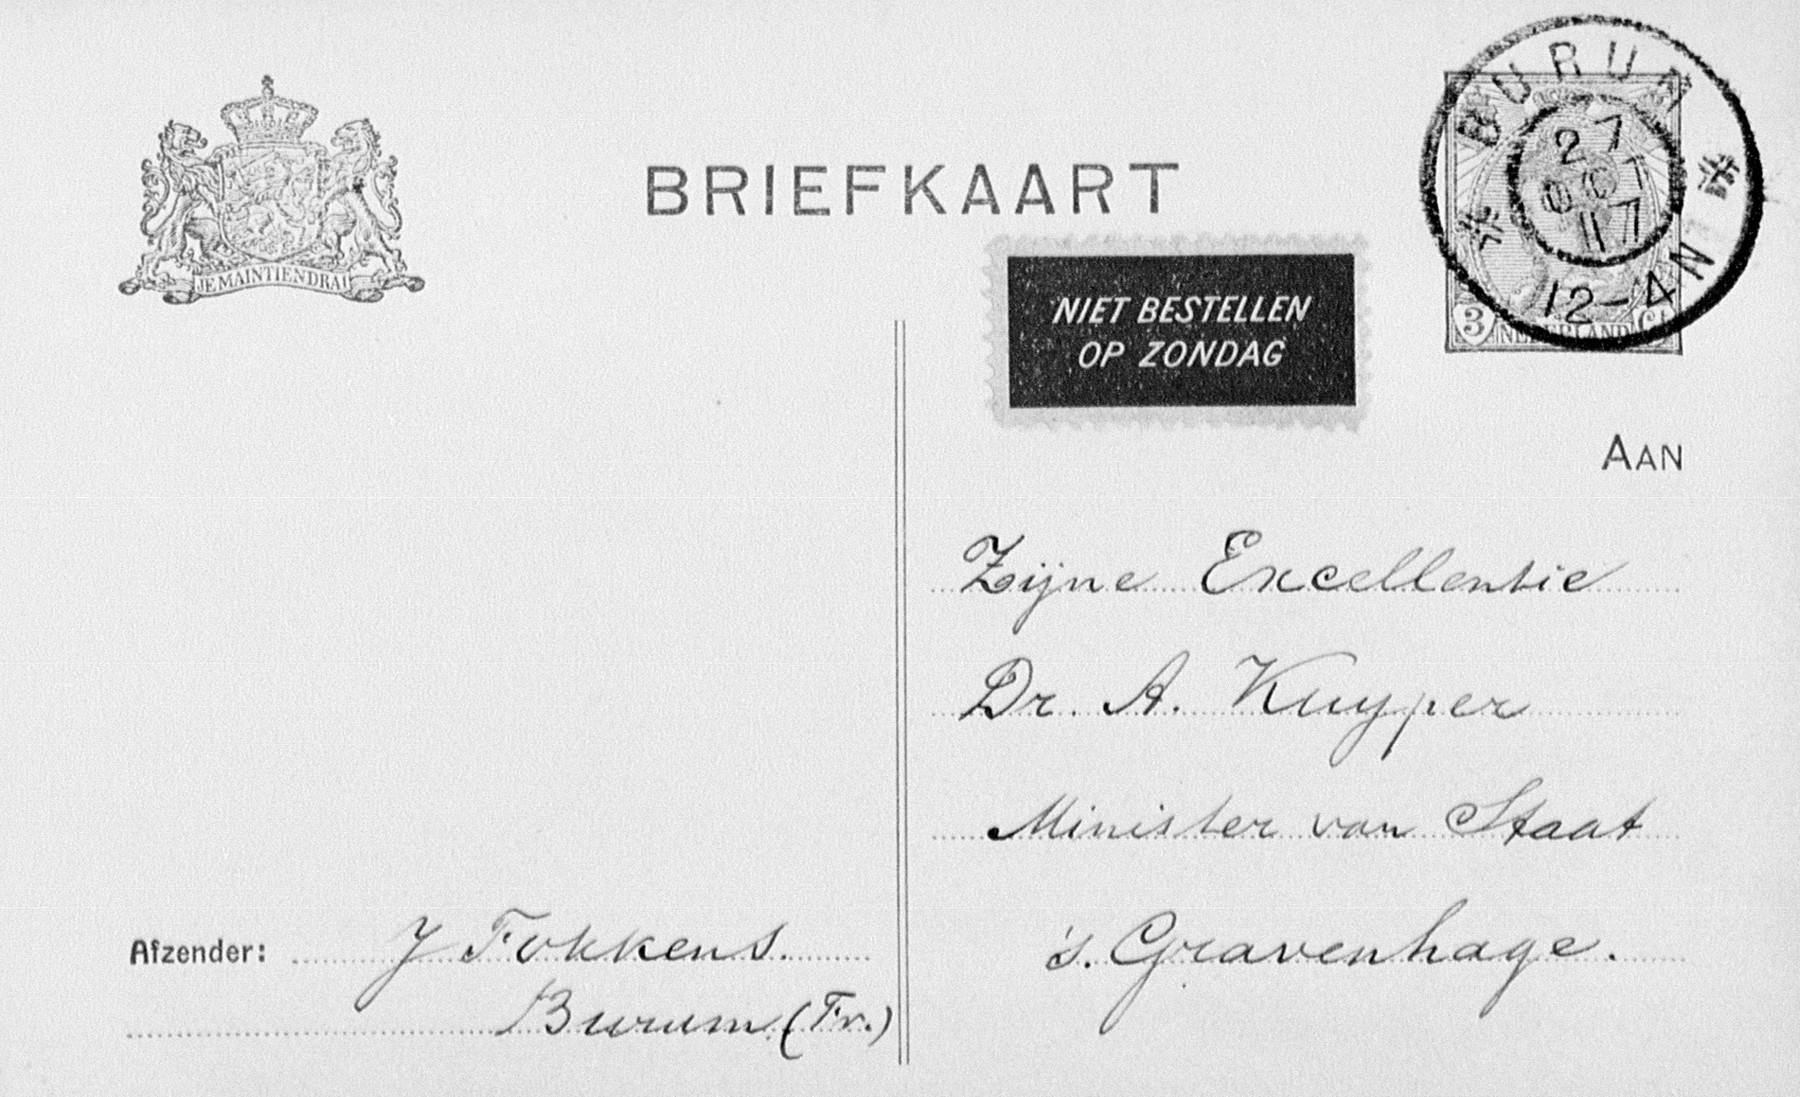 BRIEFKAART
JE MAINTIENDRAI
BURUM
27
OCT
17
12-4N
3 NEDERLAND Ct
NIET BESTELLEN
OP ZONDAG
AAN
Zijne Excellentie
Dr. A. Kuyper
Minister van Staat
's. Gravenhage.
Afzender: J Fokkens.
Burum (Fr.)